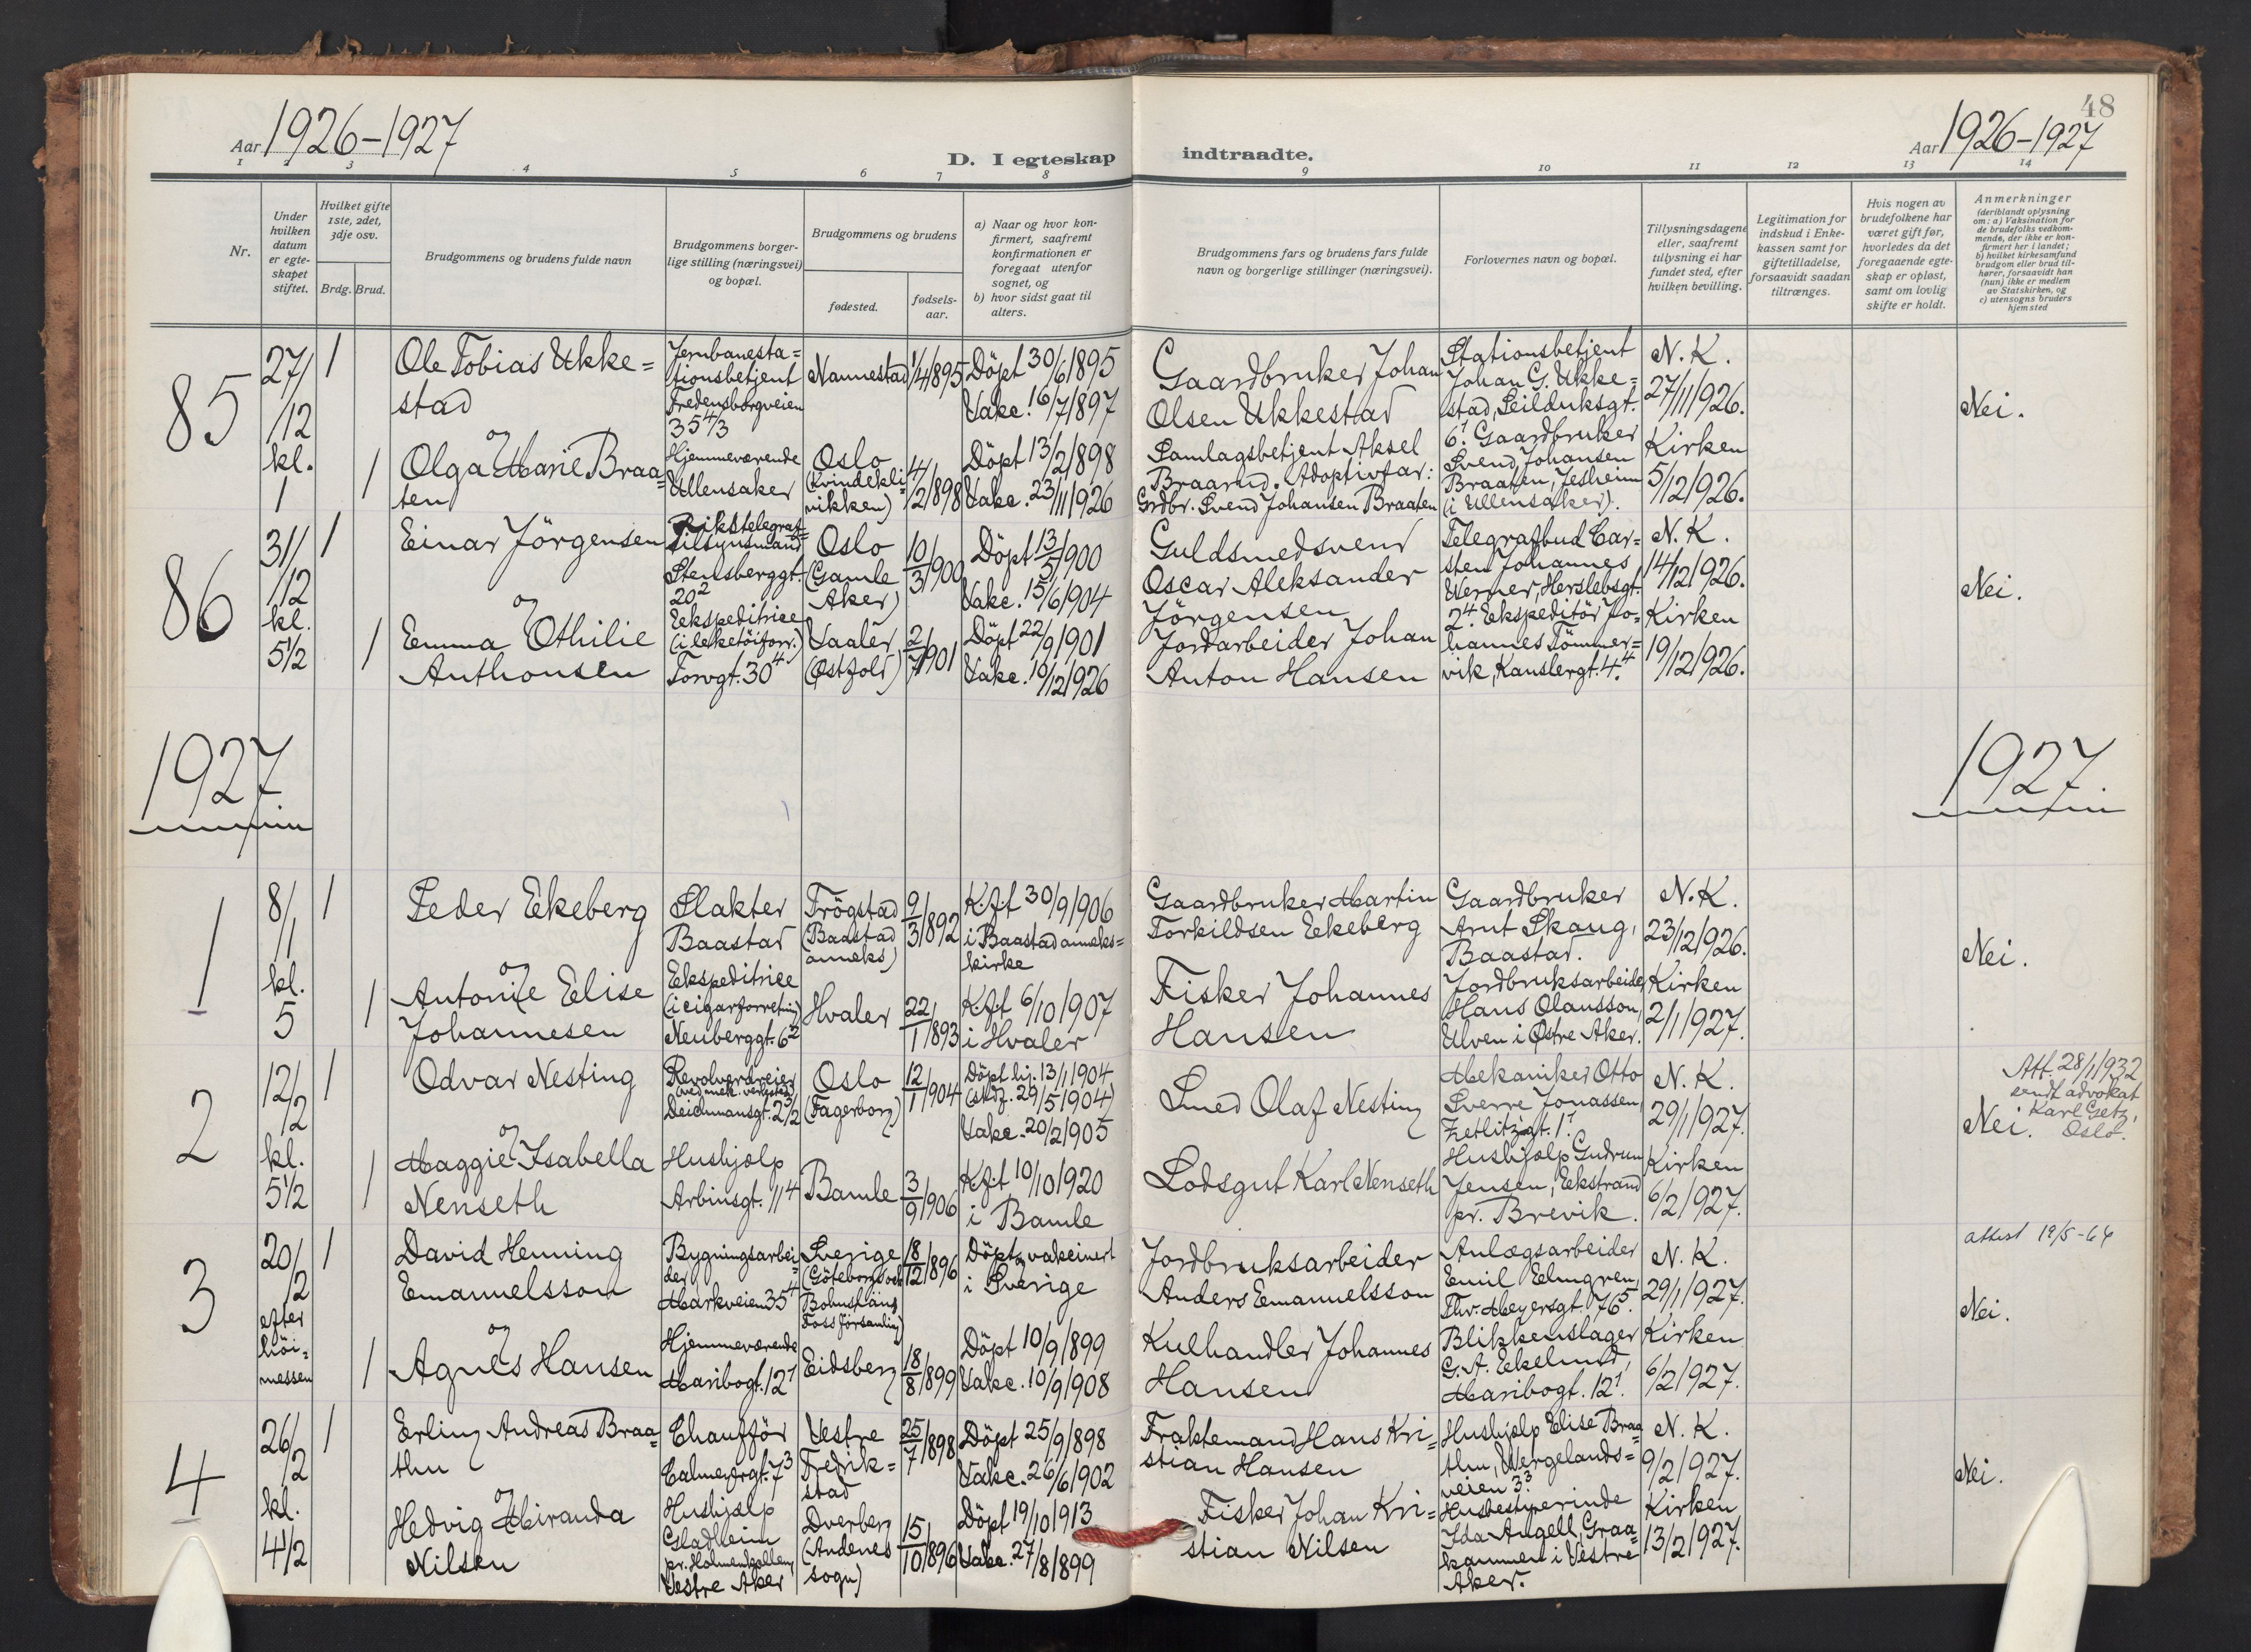 48
Aar 1926-1927
D. I egteskap indtraadte.
Aar 1926-1927
1 2 3 4 5 6 7 8 9 10 11 12 13 14
Nr.
Under hvilken datum er egteskapet stiftet.
Hvilket gifte 1ste, 2det, 3dje osv.
Brdg. Brud.
Brudgommens og brudens fulde navn
Brudgommens borgerlige stilling (næringsvei) og bopæl.
Brudgommens og brudens
fødested.
fødselsaar.
a) Naar og hvor konfirmert, saafremt konfirmationen er foregaat utenfor sognet, og
b) hvor sidst gaat til alters.
Brudgommens fars og brudens fars fulde navn og borgerlige stillinger (næringsvei).
Forlovernes navn og bopæl.
Tillysningsdagene eller, saafremt tillysning ei har fundet sted, efter hvilken bevilling.
Legitimation for indskud i Enkekassen samt for giftetilladelse, forsaavidt saadan tiltrænges.
Hvis nogen av brudefolkene har været gift før, hvorledes da det foregaaende egteskap er opløst, samt om lovlig skifte er holdt.
Anmerkninger
(deriblandt oplysning om: a) Vaksination for de brudefolks vedkommende, der ikke er konfirmert her i landet; b) hvilket kirkesamfund brudgom eller brud tilhører, forsaavidt han (hun) ikke er medlem av Statskirken, og c) utensogns bruders hjemsted
85
27/12 kl. 1
1
Ole Tobias Ukke=
stad
Jernbanesta=
tionsbetjent
Fredensborgveien
35 4/3
Nannestad
1/4 1895
Döpt 30/6 1895
Vakc. 16/7 1897
Gaardbruker Johan
Olsen Ukkestad
Stationsbetjent
Johan G. Ukke=
stad, Seilduksgt.
6¹. Gaardbruker
Svend Johansen
Braaten, Jesheim
(i Ullensaker).
N. K.
27/11 1926.
Kirken
5/12 1926.
Nei.
og
1
Olga Marie Braa=
ten
Hjemmeværende
Ullensaker
Oslo
(Kvindekli=
nikken)
4/2 1898
Döpt 13/2 1898
Vakc. 23/11 1926
Samlagsbetjent Aksel
Braarud. Adoptivfar:
Grdbr. Svend Johansen Braaten
86
31/12 kl. 5½
1
Einar Jörgensen
Rikstelegraf=
tilsynsmand
Stensberggt.
20²
Oslo
(Gamle
Aker)
10/3 1900
Döpt 13/5 1900
Vakc. 15/6 1904
Guldsmedsvend
Oscar Aleksander
Jörgensen
Telegrafbud Car=
sten Johannes
Werner, Herslebsgt.
2⁴. Ekspeditör Jo=
hannes Tömmer=
vik, Kanslergt. 4⁴.
N. K.
14/12 1926.
Kirken
19/12 1926.
Nei.
og
1
Emma Othilie
Anthonsen
Ekspeditrice
(i leketöiforr.)
Torvgt. 30⁴
Vaaler
(Østfold)
2/7 1901
Döpt 22/9 1901
Vakc. 10/12 1926
Jordarbeider Johan
Anton Hansen
1927
1927.
1
8/1 kl. 5
1
Peder Ekeberg
Slakter
Baastad
Trögstad
(Baastad
anneks)
9/3 1892
Kft 30/9 1906
i Baastad anneks=
kirke
Gaardbruker Martin
Torkildsen Ekeberg
Gaardbruker
Arnt Skaug,
Baastad.
N. K.
23/12 1926.
Nei.
og
1
Antonie Elise
Johannesen
Ekspeditrice
(i cigarforretning)
Neuberggt. 6²
Hvaler
22/1 1893
Kft 6/10 1907
i Hvaler
Fisker Johannes
Hansen
Jordbruksarbeider
Hans Olausson,
Ulven i Østre Aker.
Kirken
2/1 1927.
2
12/2 kl. 5½
1
Odvar Nesting
Revolverdreier
(ved mek. verksted)
Deichmansgt. 2 3/2
Oslo
(Fagerborg)
12/1 1904
Döpt hj. 13/1 1904
(stdf. 29/5 1904)
Vakc. 20/2 1905
Smed Olaf Nesting
Mekaniker Otto
Sverre Jonassen,
Zetlitzgt. 1¹.
N. K.
29/1 1927.
Nei.
Att. 28/1 1932
sendt advokat
Karl Getz,
Oslo.
og
1
Maggie Isabella
Nenseth
Hushjælp
Arbinsgt. 11⁴
Bamle
3/9 1906
Kft 10/10 1920
i Bamle
Lodsgut Karl Nenseth
Hushjælp Gudrun
Jensen, Ekstrand
pr. Brevik.
Kirken
6/2 1927.
3
20/2 efter höi=messen
1
David Henning
Emanuelsson
Bygningsarbei=
der
Markveien 35⁴
Sverige
(Göteborgs och
Bohuslän,
Foss församling)
18/12 1896
Döpt, vakcinert
i Sverige
Jordbruksarbeider
Anders Emanuelsson
Anlægsarbeider
Emil Elmgren,
Thv. Meyersgt. 76⁵.
N. K.
29/1 1927.
attest 12/5-64
Nei.
og
1
Agnes Hansen
Hjemmeværende
Maribogt. 12¹
Eidsberg
18/8 1899
Döpt 10/9 1899
Vakc. 10/9 1908
Kulhandler Johannes
Hansen
Blikkenslager
G. A. Ekelund,
Maribogt. 12¹.
Kirken
6/2 1927.
4
26/2 kl. 4½
1
Erling Andreas Braa=
thu
Chaufför
Calmeyergt. 7³
Vestre
Fredrik=
stad
25/7 1898
Döpt 25/9 1898
Vakc. 26/6 1902
Fraktemand Hans Kri=
stian Hansen
Hushjælp Elise Braa=
thu, Wergelands=
veien 3³.
N. K.
9/2 1927.
Nei.
og
Hedvig Miranda
Nilsen
Hushjælp
Gladheim
pr. Holmenkollen,
Vestre Aker
Dverberg
(Andenes
sogn)
15/10 1896
Döpt 19/10 1913
Vakc. 27/8 1899
Fisker Johan Kri=
stian Nilsen
Husbestyrerinde
Ida Angell, Graa=
kammen i Vestre
Aker.
Kirken
13/2 1927.